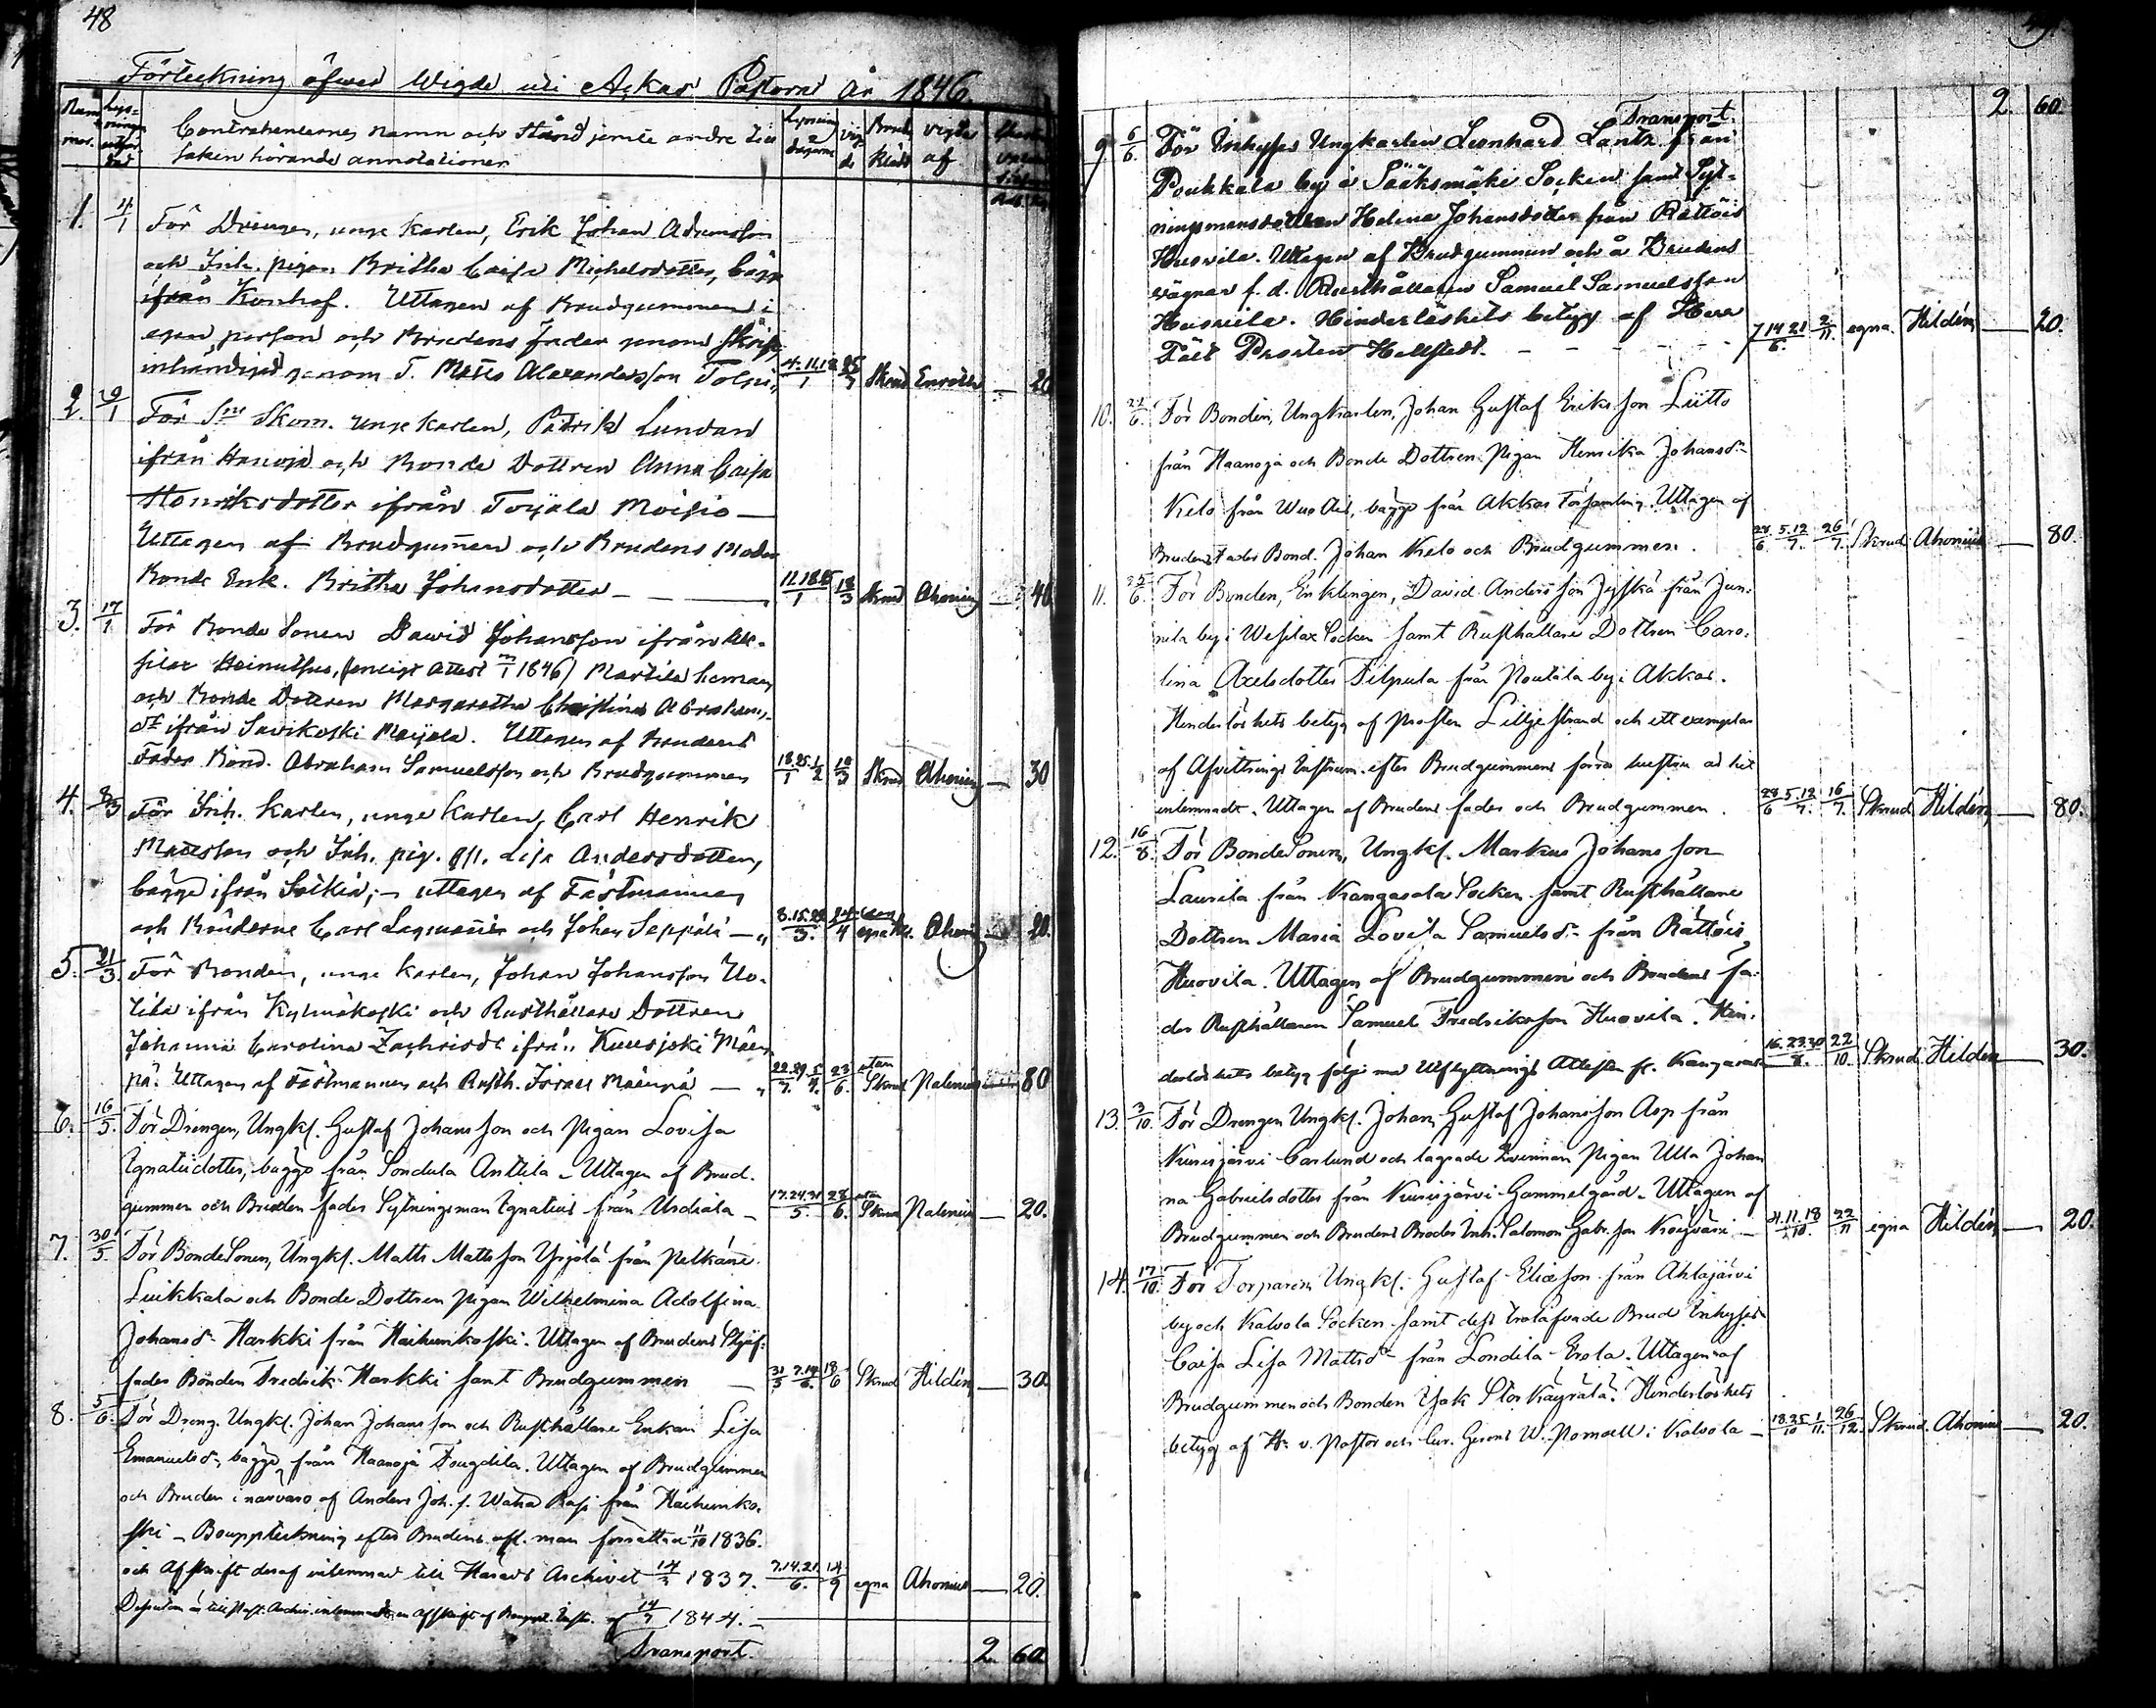 48
Förteckning öfwer Wigde uti Ackas Pastorat År 1846.
Contrahenternes namn och stånd jemte andre till
saken hörande annotationer
vigde af
1. 4/1 För Drengen, unge Karlen, Erik Johan Adamsson
och Inh. pigan Britha Caisa Michelsdotter, begge
ifrån Konhof. Uttagen af Brudgummen i
egen person och Brudens fader genom skrift
inhändigad genom T. Matts Alexandersson Tolpi 4.11.18/1 Skrud 20
2. För Skom. unge Karlen, Patrik Lundan
ifrån Hanoja och Bonde Dottren Anna Caisa
Henriksdotter ifrån Torjala Moisio
Uttagen af Brudgummen och Brudens Moder
Bonde Enk. Britha Johansdotter 11.18.25/1 18/3 Skrud Ahonius 40
3. 17/1 För Bonde Sonen David Johansson ifrån
(enligt attest 1846)
och Bonde Dottren Margaretha Christina Abrahams
dr ifrån Savikoski Maijala. Uttagen af Brudens
Fader Bond. Abraham Samuelsson och Brudgummen 18.25/1 1/2 10/3 Skrud Ahonius 30
4. 8/3 För Inh. Karlen, unge Karlen, Carl Henrik
Mattsson och Inh. pig. Lisa Andersdotter,
begge ifrån Sotkia; uttagen af Fästmannen
och Bönderne Carl Lagmanin och Johan Seppälä 8.15.22/3. 24/4 Ahonius 20.
5. 21/3. För Bonden, unge Karlen, Johan Johansson Uo-
tila ifrån Kylmäkoski och Rusthållare Dottren
Johanna Carolina Zachrisdr ifrån Kuurjoki Mäen
pä. Uttagen af Fästmannen och Rusth. Israel Mäenpä 23/6. utan Skrud Palenius 80
6. 16/5. För Drengen, Ungkl. Gustaf Johansson och Pigan Lovisa
Ignatiidotter, bägge från Sondula Anttila. Uttagen af Brud-
gummen och Bruden fader Sytningsman Ignatius från Urdiala 17.24.31/5. 28/6. utan Skrud Palenius 20.
7. 30/5. För BondeSonen, Ungkl. Matts Mattsson Yrjölä från Pelkäne
Luikkala och Bonde Dottren Pigan Wilhelmina Adolfina
Johansdr Harkki från Haihunkoski. Uttagen af Brudens Styf-
fader Bonden Fredrik Harkki samt Brudgummen 31/5 7.14/6. 18/6 Skrud Hildén 30
8. 5/6. För Dreng. Ungkl. Johan Johansson och Rusthållare Enkan Lisa
Emanuelsdr, bägge från Haanoja Tougdila. Uttagen af Brudgummen
och Bruden i närvaro af Anders Joh. s. Waha Rasi från Haihunko-
ski. Bouppteckning efter Brudens afl. man förrättad 11/10 1836.
och Afskrift deraf inlemnad till Härads Archivet 1837. 7.14.21/6. 14/9 egna Ahonius 20.
1844.
Transport. 2 60
Transport. 2. 60.
9 6/6. För Inhyses Ungkarlen Leonhard Lantz från
Poukkala by i Sääksmäki Socken samt Syt-
ningsmansdottren Helena Johansdotter från Rättöis
Huovila. Uttagen af Brudgummen och å Brudens
vägnar f. d. Rusthållaren Samuel Samuelsson
Huovila. Hinderlöshets betyg af Herr
Fält Prosten Hellstedt. 7 14 21/6. 2/11 egna Hildén 20.
10. 27/6. För Bonden, Ungkarlen, Johan Gustaf Eriksson Liitto
från Haanoja och Bonde Dottren Pigan Henrika Johansdr
Kelo från , bägge från Akkas Församling. Uttagen af
Brudens Fader Bond. Johan Kelo och Brudgummen. 28/6 5.12/7. 26/7. Skrud Ahonius 80.
11. För Bonden, Enklingen, David Andersson Jyskä från Jun-
nila by i Wesilax Socken samt Rusthållare Dottren Caro-
lina Axelsdotter Tilpula från Pontala by i Akkas.
Hinderlöshets betyg af prosten Lilljestrand och ett exemplar
af Afvittrings Instrum. efter Brudgummens förra hustru är hit
inlemnadt. Uttagen af Brudens fader och Brudgummen. 28/6 5.12/7. 16/7. Skrud Hildén 80.
12. 16/8. För BondeSonen, Ungkl. Markus Johansson
Laurila från Kangasala Socken samt Rusthållare
Dottren Maria Lovisa Samuelsdr från Rättöis
Huovila. Uttagen af Brudgummen och Brudens fa-
der Rusthållaren Samuel Fredriksson Huovila. Hin-
derlöshets betyg följt med Utflyttnings Attesten fr. Kangasala 16.23.30/8. 22/10. Skrud Hildén 30.
13. 3/10. För Drengen Ungkl. Johan Gustaf Johansson Asp från
Kurisjärvi Carlund och lägrade Qvinnan Pigan Ulla Johan
na Gabrielsdotter från Kurisjärvi Gammelgård. Uttagen af
Brudgummen och Brudens Broder Inh. Salomon Gabr.son 4.11.18/10. 22/11 egna Hildén 20.
14. 17/10. För Torparen Ungkl. Gustaf Eliasson från Ahlajärvi
by och Kalvola Socken samt dess trolåfvade Brud Inhyses
Caisa Lisa Mattsdr från Londila Erola. Uttagen af
Brudgummen och Bonden Isak Stor Käyrälä. Hinderlöshets
betyg af Hr v. Pastor och Cur. Gerent W. Pomoell i Kalvola 18.25/10 1/11. 26/12. Skrud. Ahonius 20.